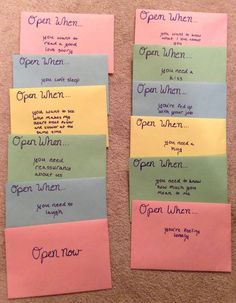 Open When...
you want to
read a good
love story
Open When...
you can't sleep
Open When...
you want to see
who makes my
heart beat faster
and slower at the
same time
Open When...
you need
reassurance
about us
Open When...
you need to
laugh
Open Now
Open When...
you want to know
what I love about
you
Open When...
you need a
kiss
Open When...
you're fed up
with your job
Open When...
you need a
hug
Open When...
you need to know
how much you
mean to me
Open When...
you're feeling
lonely